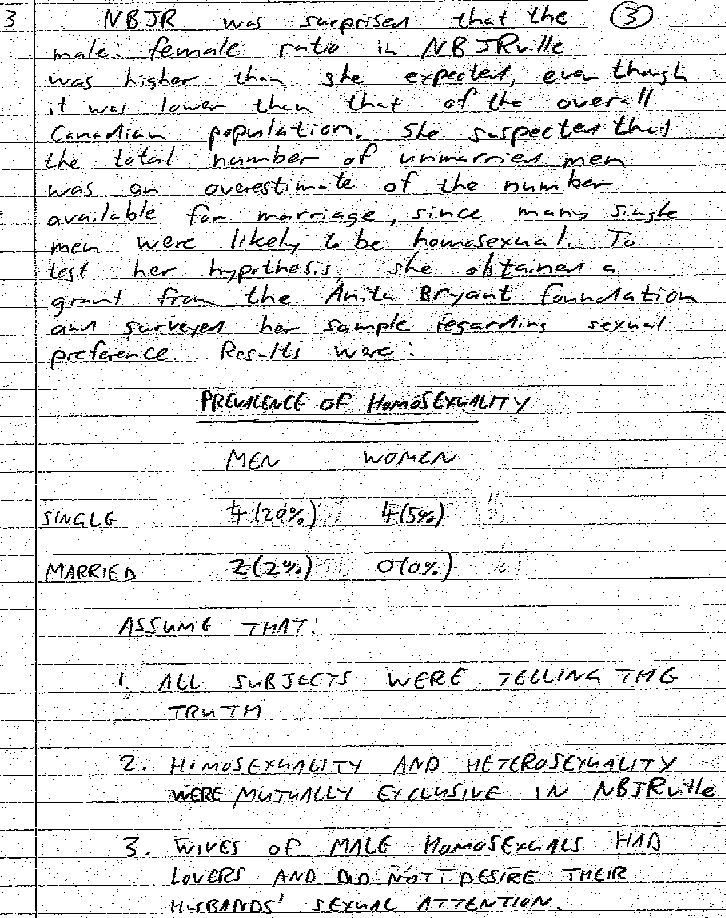 3 NBJR was surprised that the ③
male: female ratio in NBJRville
was higher than she expected, even though
it was lower than that of the overall
Canadian population. She suspected that
the total number of unmarried men
was an overestimate of the number
available for marriage, since many single
men were likely to be homosexual. To
test her hypothesis, she obtained a
grant from the Anita Bryant Foundation
and surveyed her sample regarding sexual
preference. Results were:
PREVALENCE OF HOMOSEXUALITY
MEN WOMEN
SINGLE 4(20%) 4(5%)
MARRIED 2(2%) 0(0%)
ASSUME THAT:
1. ALL SUBJECTS WERE TELLING THE
TRUTH
2. HOMOSEXUALITY AND HETEROSEXUALITY
WERE MUTUALLY EXCLUSIVE IN NBJRville
3. WIVES OF MALE HOMOSEXUALS HAD
LOVERS AND DID NOT DESIRE THEIR
HUSBANDS' SEXUAL ATTENTION.